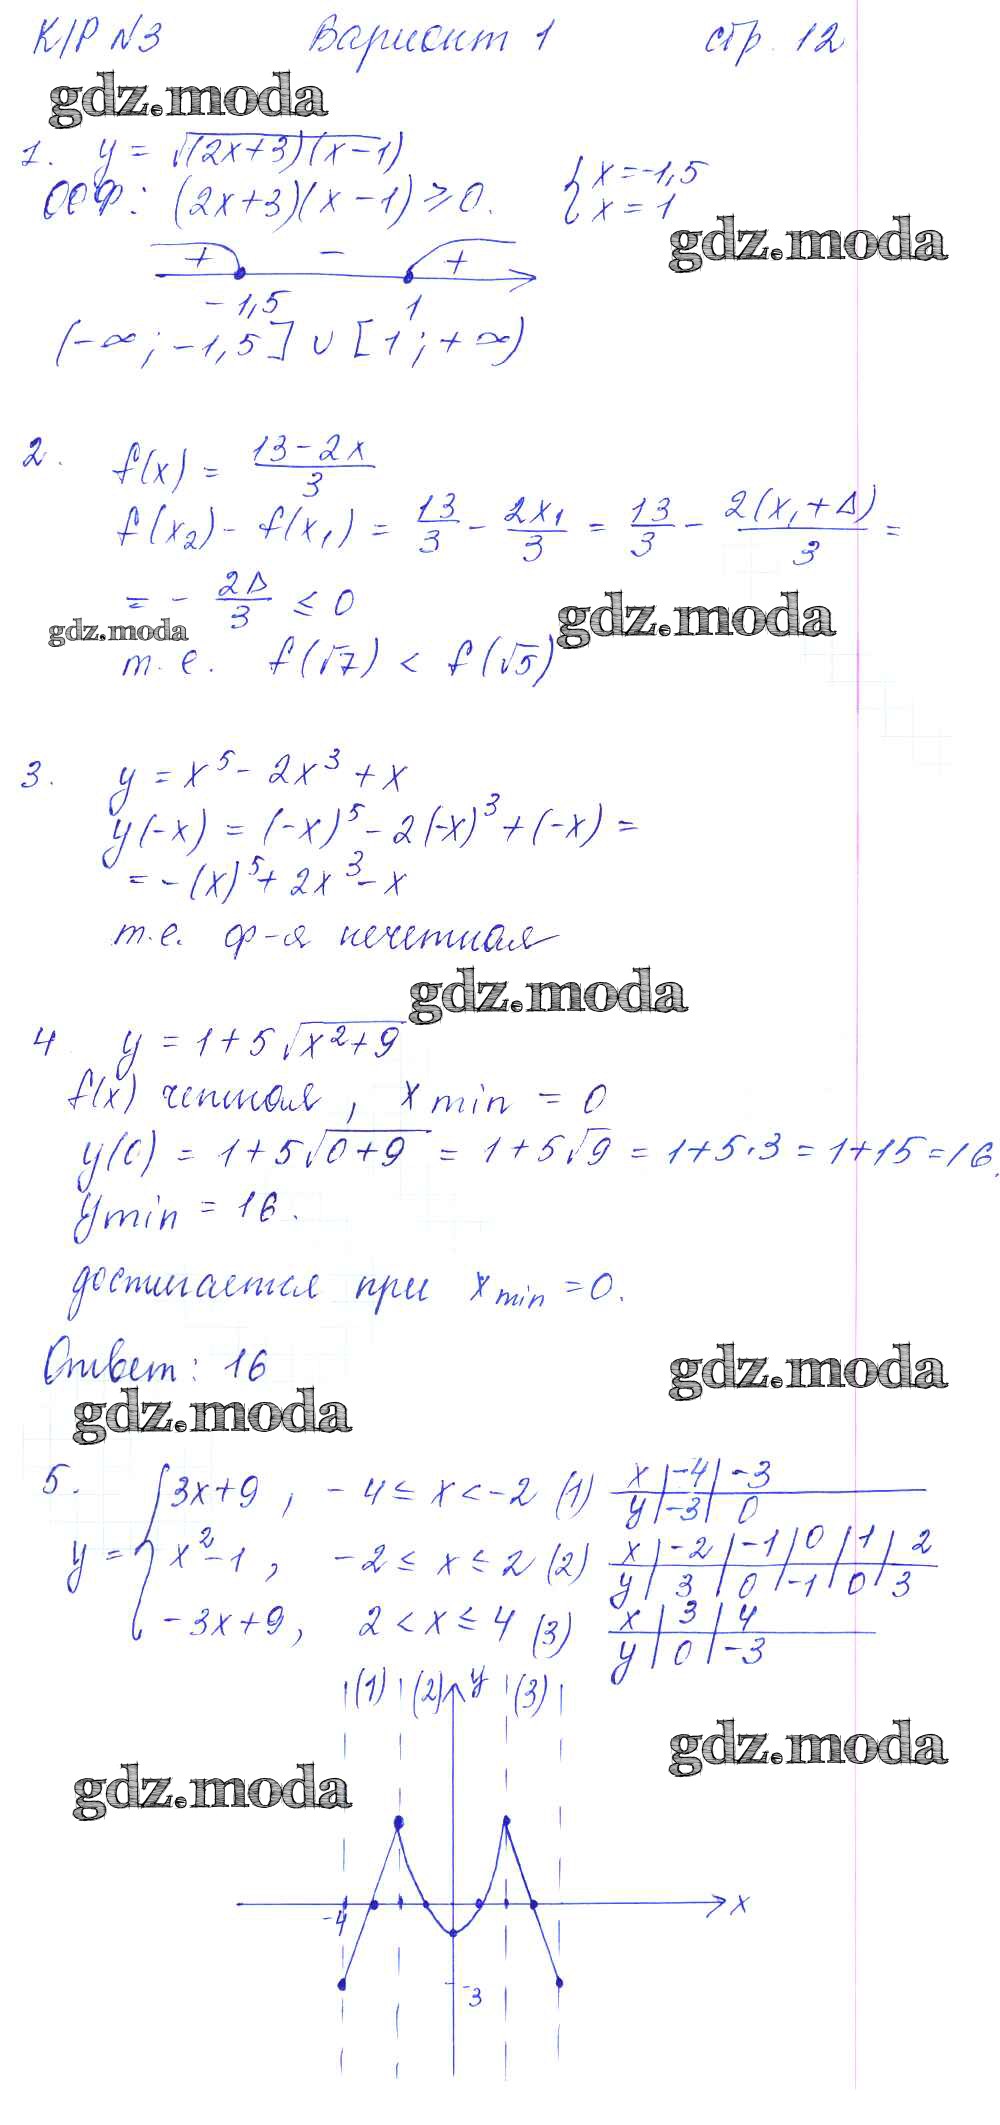 К/Р №3 Вариант 1 стр. 12
gdz.moda
1. y = √(2x+3)(x−1)
ООФ: (2x+3)(x−1) ≥ 0. { x = −1,5
x = 1
gdz.moda
+ − +
−1,5 1
(−∞; −1,5] ∪ [1; +∞)
2. f(x) = (13−2x)/3
f(x₂) − f(x₁) = 13/3 − 2x₁/3 = 13/3 − 2(x₁+Δ)/3 =
= − 2Δ/3 ≤ 0
gdz.moda gdz.moda
т.е. f(√7) < f(√5)
3. y = x⁵ − 2x³ + x
y(−x) = (−x)⁵ − 2(−x)³ + (−x) =
= −(x)⁵ + 2x³ − x
т.е. ф-я нечетная
gdz.moda
4 y = 1+5√x²+9
f(x) четная, x min = 0
y(0) = 1+5√0+9 = 1+5√9 = 1+5·3 = 1+15 = 16.
y min = 16.
достигается при x min = 0.
Ответ: 16
gdz.moda
gdz.moda
5. y = { 3x+9, −4 ≤ x < −2 (1) x | −4 | −3
y | −3 | 0
x²−1, −2 ≤ x ≤ 2 (2) x | −2 | −1 | 0 | 1 | 2
y | 3 | 0 | −1 | 0 | 3
−3x+9, 2 < x ≤ 4 (3) x | 3 | 4
y | 0 | −3
(1) (2) y (3)
gdz.moda
gdz.moda
−4 x
−3